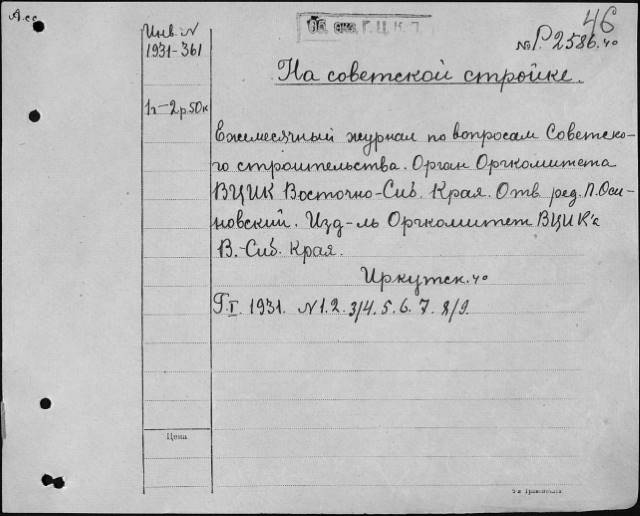 Асс
46
Инв. N
1931-361
№ Р 2586.40
На советской стройке.
1г-2р.50к
Ежемесячный журнал по вопросам Советско-
го строительства. Орган Оргкомитета
ВЦИК Восточно-Сиб. Края. Отв. ред. П. Оси-
новский. Изд-ль Оргкомитет ВЦИК'а
В.-Сиб. Края.
Иркутск. 40
Г.I. 1931. N1.2.3/4.5.6.7.8/9.
Цена